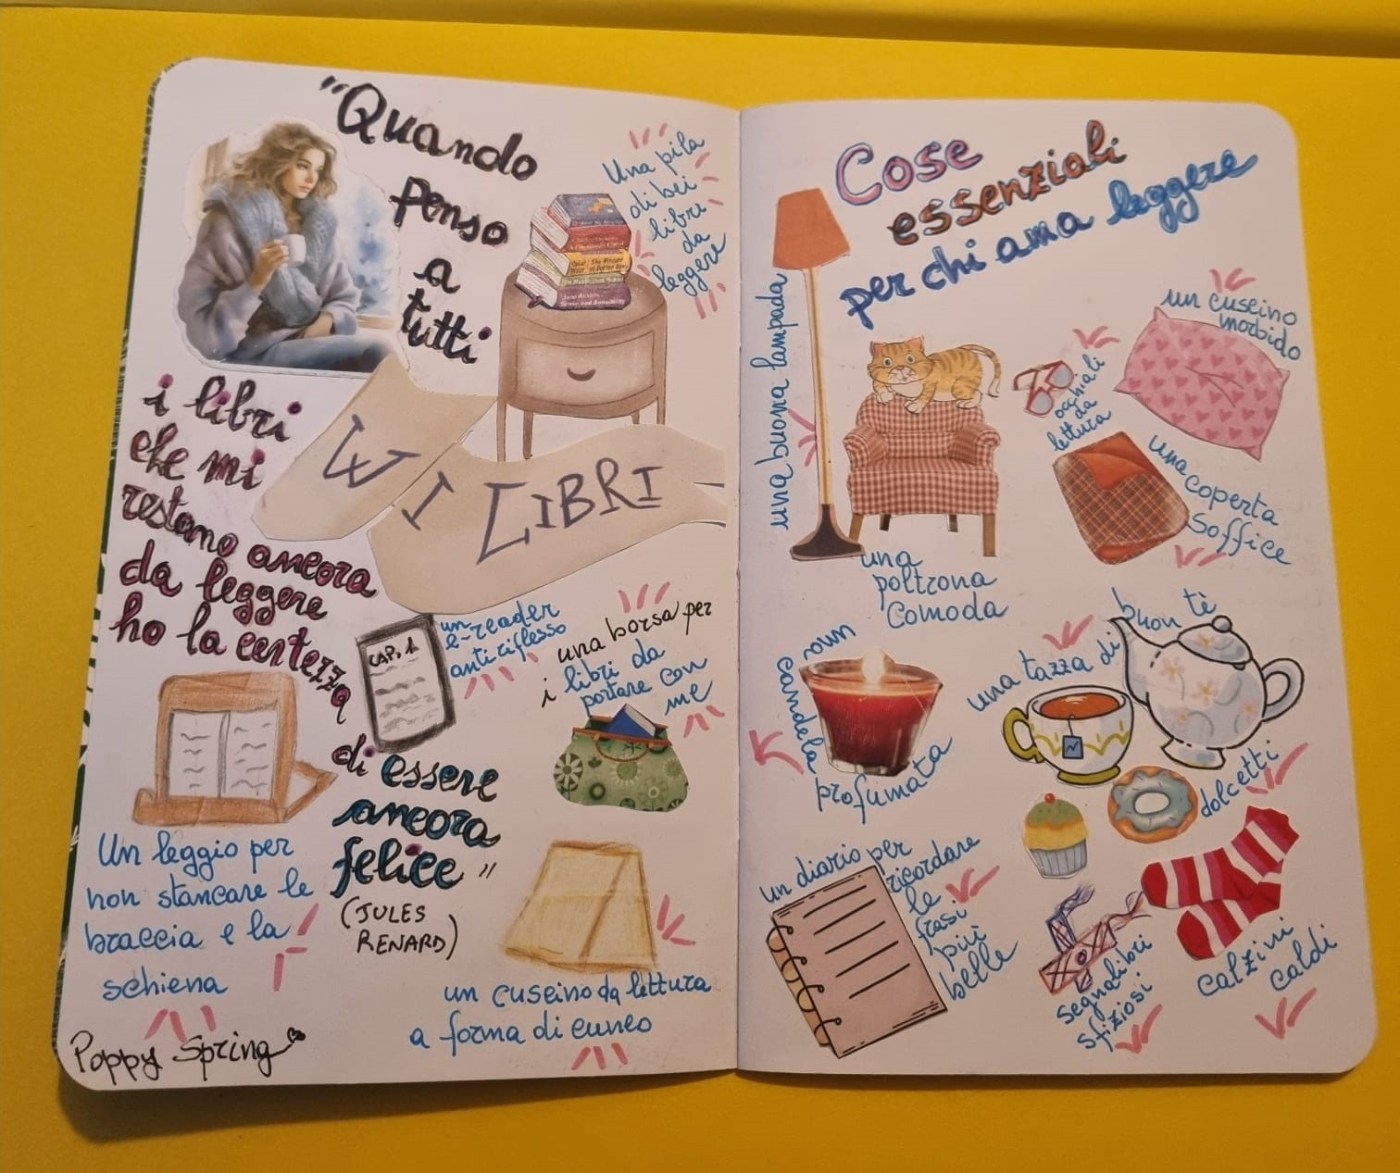 "Quando
penso
a
tutti
i libri
che mi
restano ancora
da leggere
ho la certezza
di essere
ancora
felice"
(JULES
RENARD)
Una pila
di bei
libri
da
leggere
W I LIBRI
CAP. 1
un
e-reader
antiriflesso
una borsa per
i libri da
portare con
me
Un leggio per
non stancare le
braccia e la
schiena
un cuscino da lettura
a forma di cuneo
Poppy Spring
Cose
essenziali
per chi ama leggere
una buona lampada
una
poltrona
comoda
occhiali
da
lettura
un cuscino
morbido
una coperta
soffice
una
candela
profumata
una tazza di
buon tè
dolcetti
un diario per
ricordare
le
frasi
più
belle
segnalibri
sfiziosi
calzini
caldi